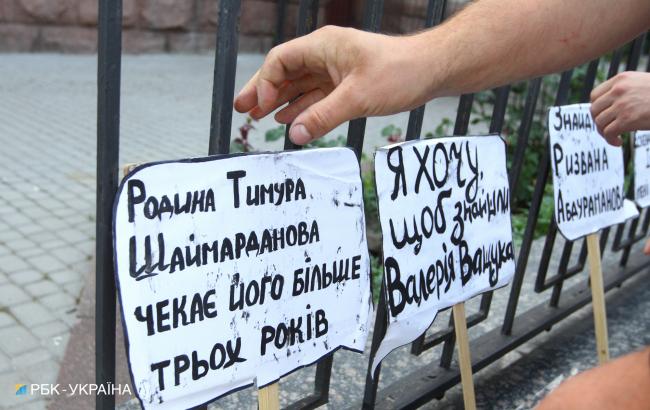 Родина Тимура
Шаймарданова
чекає його більше
трьох років
Я хочу,
щоб знайшли
Валерія Ващука
Знайдіть
Ризвана
Абдураманова
РБК-УКРАЇНА